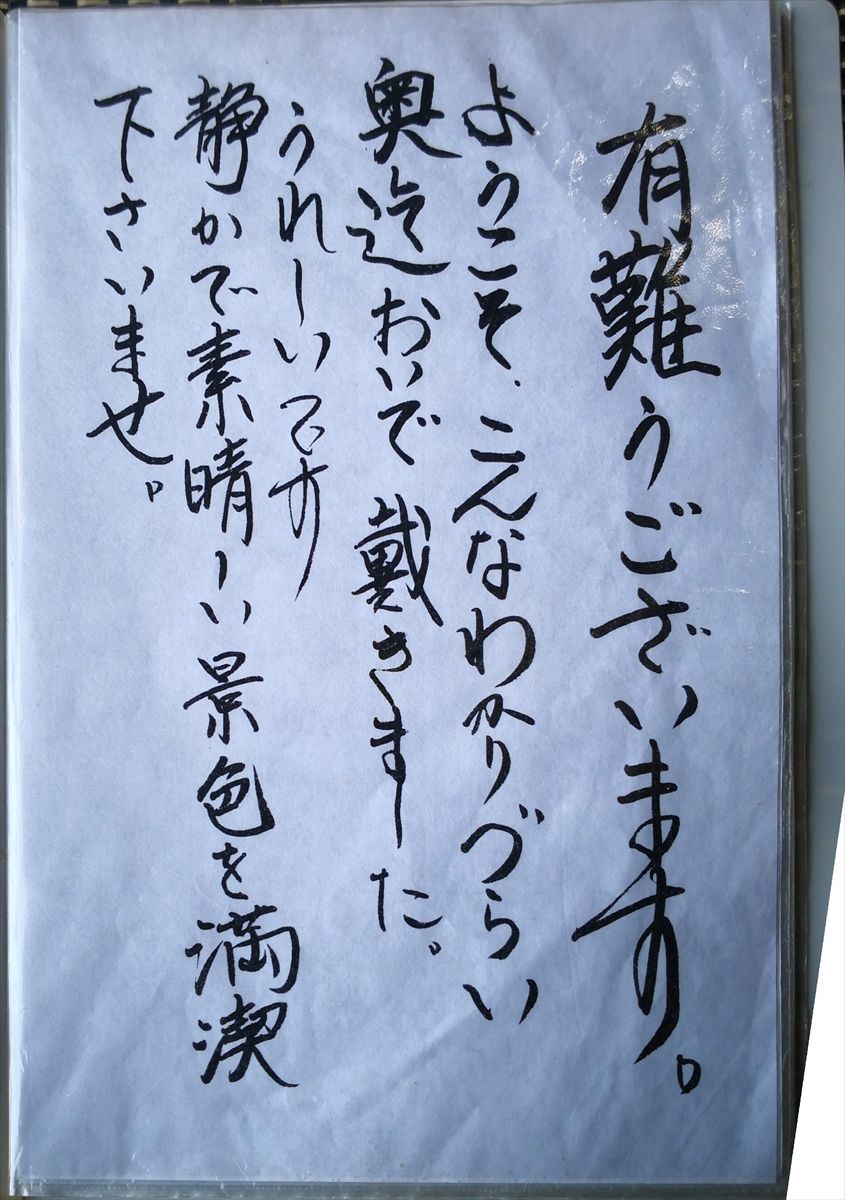 有難うございます。
ようこそ、こんなわかりづらい
奥迄おいで戴きました。
うれしいです
静かで素晴しい景色を満喫
下さいませ。